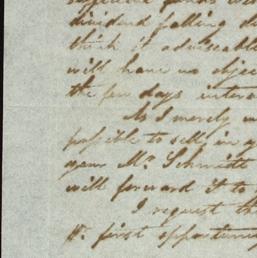 dividend falling d
think it adviseable
will have no objec
the few days interv
As I merely w
possible to sell in y
your Mr. Schmidt
will forward it to
I request th
pr. first opportunity